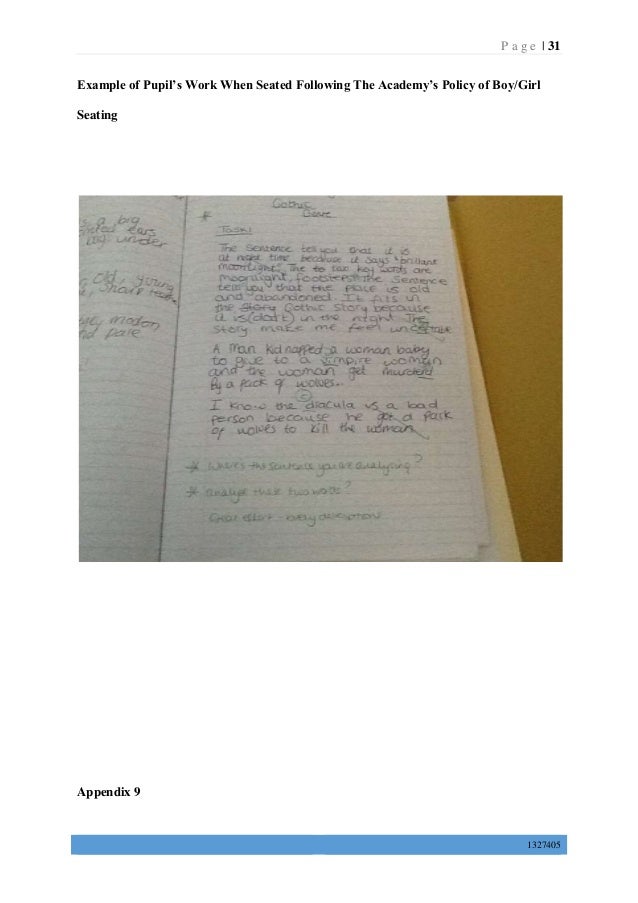 P a g e | 31
Example of Pupil's Work When Seated Following The Academy's Policy of Boy/Girl
Seating
a big
ears
under
old, young
modon
pale
Gothic
Genre
*
Task1
The sentence tell you that it is
at night time because it says "brillant
moonlight". The to two key words are
moonlight, footsteps. The sentence
tell you that the place is old
and abandoned. It fits in
the story Gothic story because
it is (dark) in the night The
story make me feel
A man kidnapped a woman baby
to give to a vimpire woman
and the woman get murderd
By a pack of wolves..
I know the dracula vs a bad
person because he got a pack
of wolves to kill the woman
* Where's the sentence you are analysing?
* analyse these two words?
Great effort - every description
Appendix 9
1327405